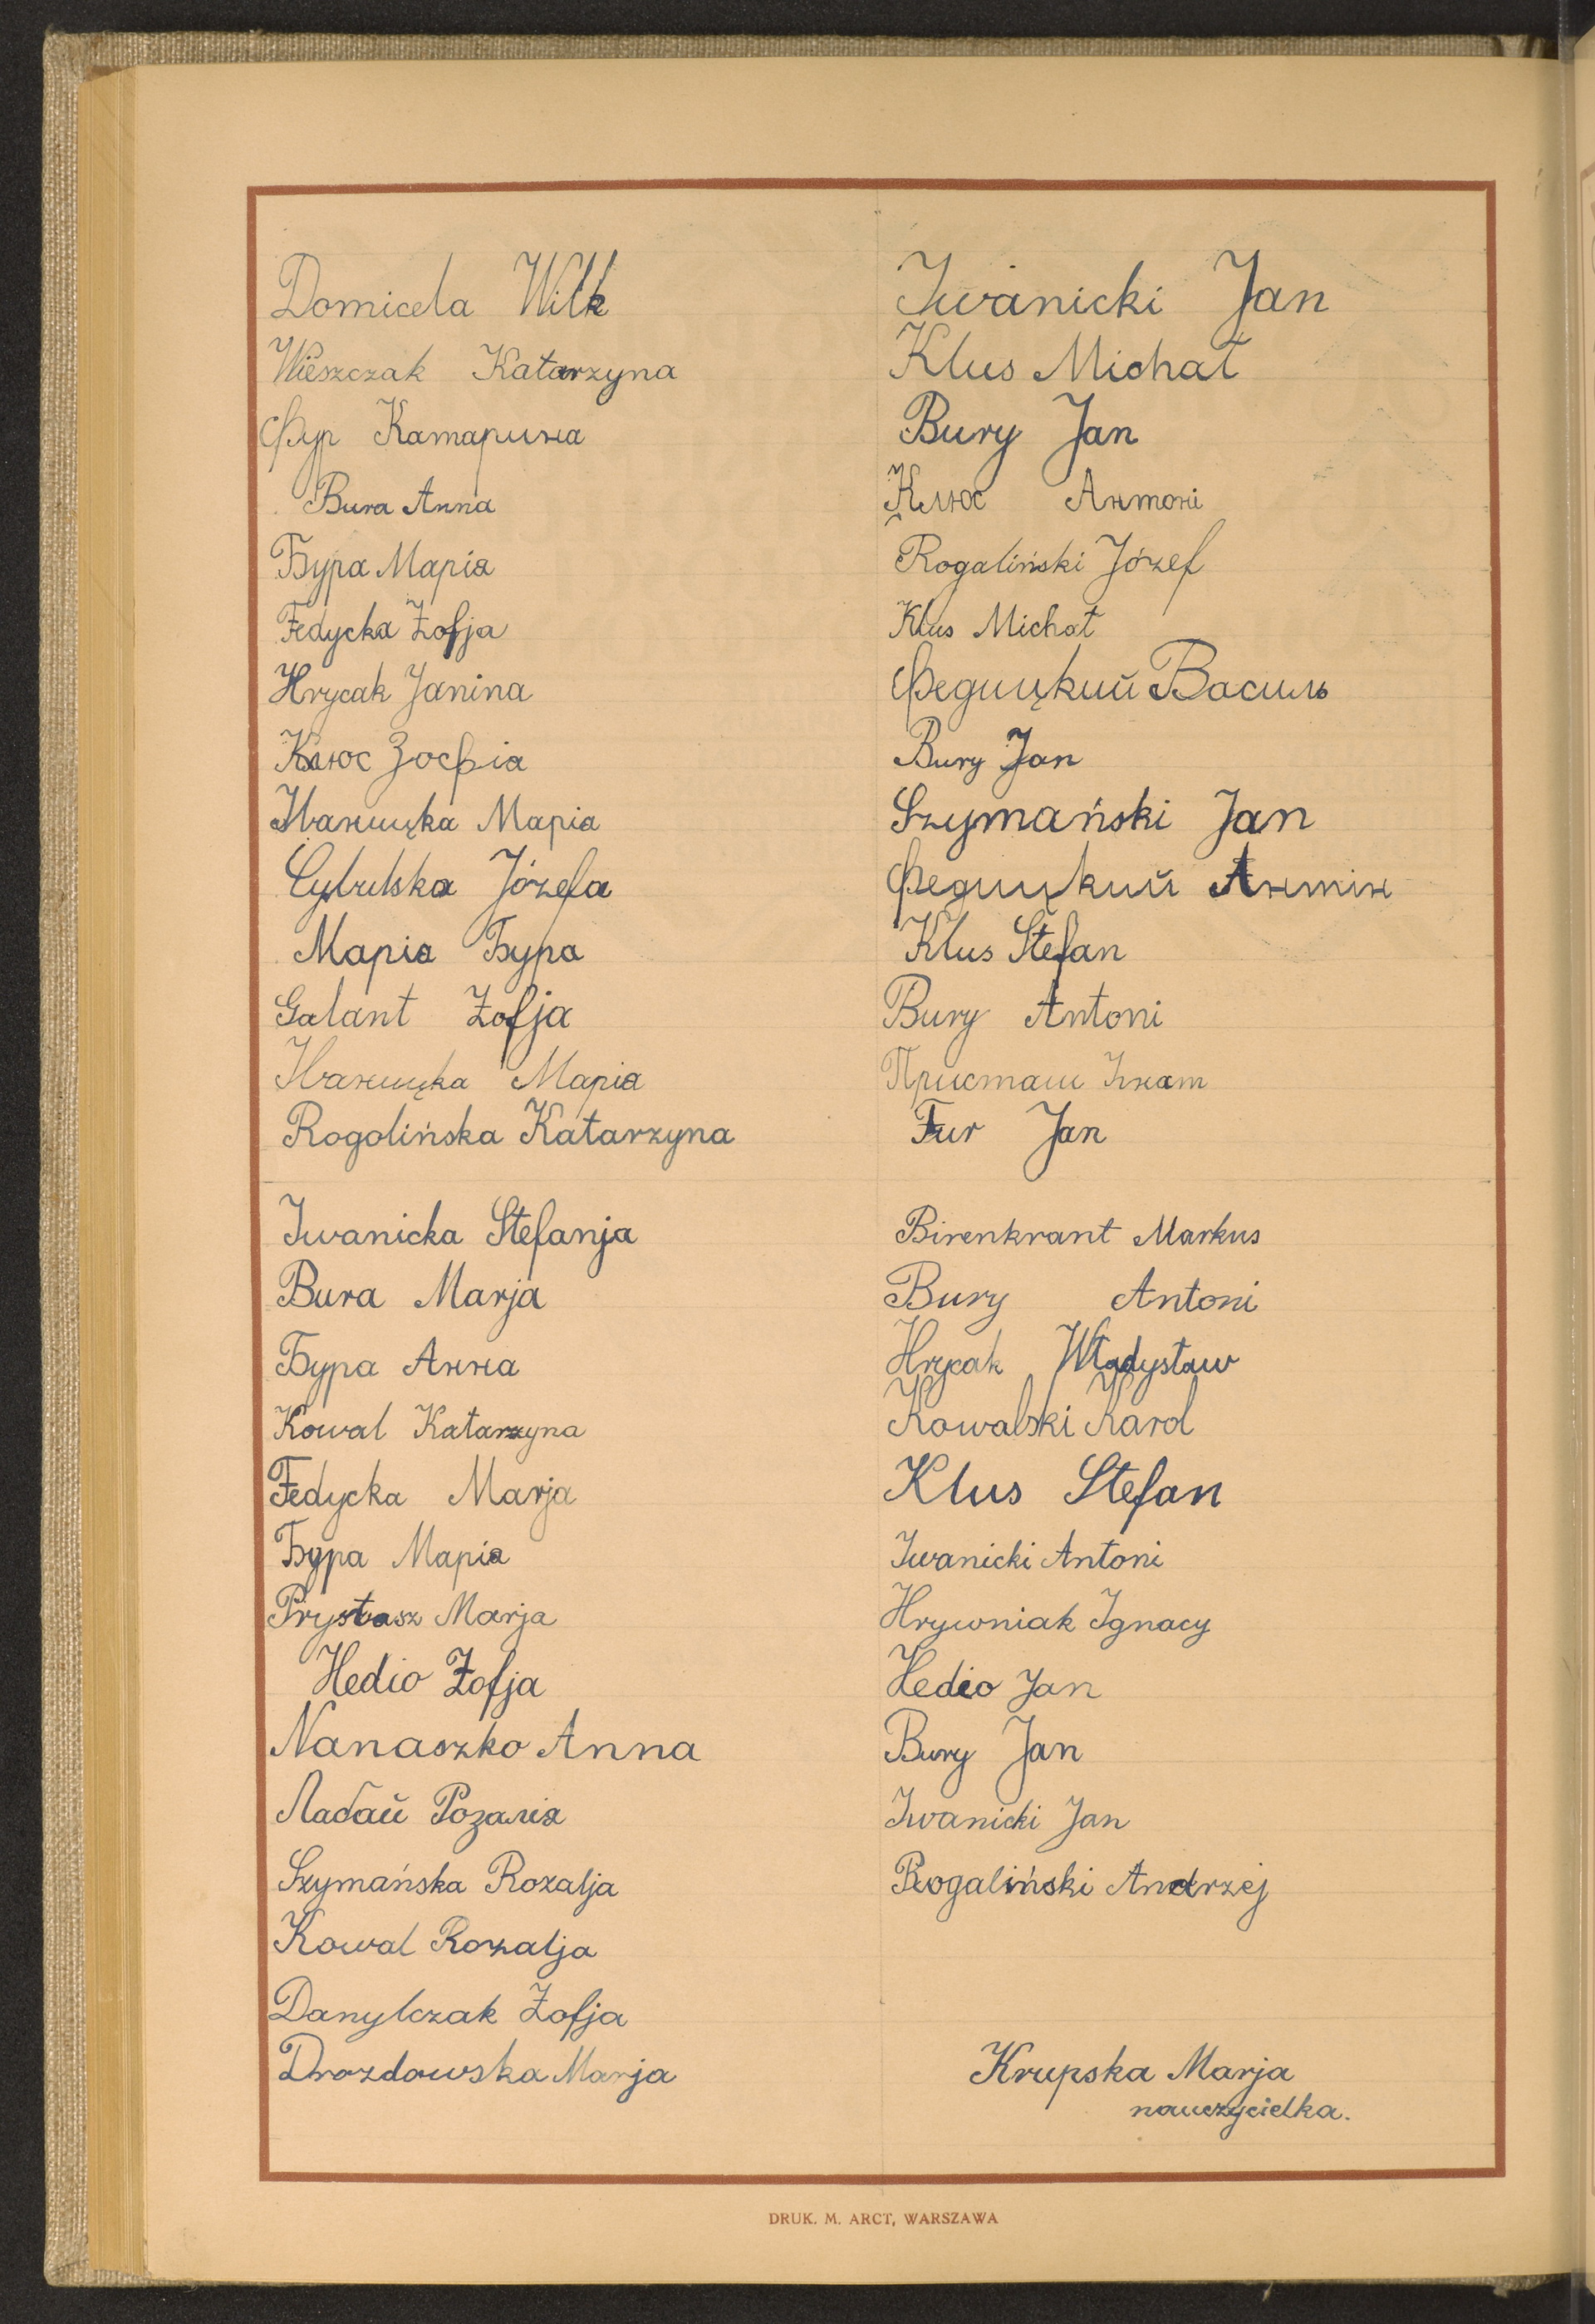 Domicela Wilk
Wieszczak Katarzyna
Фур Катарина
Bura Anna
Бура Марія
Fedycka Zofja
Hrycak Janina
Клюс Зофія
Іваницка Марія
Cybulska Józefa
Марія Бура
Galant Zofja
Іваницка Марія
Rogolińska Katarzyna
Iwanicka Stefanja
Bura Marja
Бура Анна
Kowal Katarzyna
Fedycka Marja
Бура Марія
Prystasz Marja
Hedio Zofja
Nanaszko Anna
Лабай Розалія
Szymańska Rozalja
Kowal Rozalja
Danylczak Zofja
Drozdowska Marja
Iwanicki Jan
Klus Michał
Bury Jan
Клюс Антоні
Rogaliński Józef
Klus Michał
Федицкий Василь
Bury Jan
Szymański Jan
Федицкий Антін
Klus Stefan
Bury Antoni
Присташ Ігнат
Fur Jan
Birenkrant Markus
Bury Antoni
Hrycak Władysław
Kowalski Karol
Klus Stefan
Iwanicki Antoni
Hrywniak Ignacy
Hedio Jan
Bury Jan
Iwanicki Jan
Rogaliński Andrzej
Krupska Marja
nauczycielka.
DRUK. M. ARCT, WARSZAWA